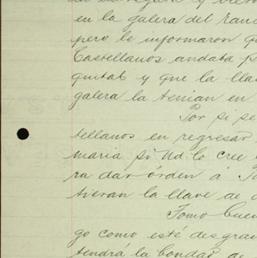 en la galera del ran
pero le informaron q
Castellanos andaba p
quital y que la lla
galera la tenian en
Por si se
tellanos en regresar
maria si Ud. lo cree
ra dar orden á
tieran la llave de
Tomo buen
go como esté desgra
tendrá la bondad de